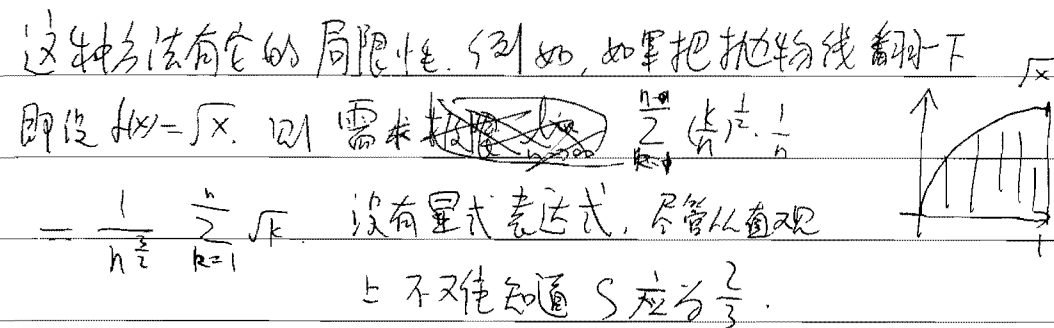 这种方法有它的局限性. 例如, 如果把抛物线翻一下
即设 f(x)=√x. 则需求 ∑_{k=1}^{n} (k/n)^{1/2}·1/n
= 1/n^{3/2} ∑_{k=1}^{n} √k. 没有显式表达式, 尽管从直观
上不难知道 S 应为 2/3.
√x
1